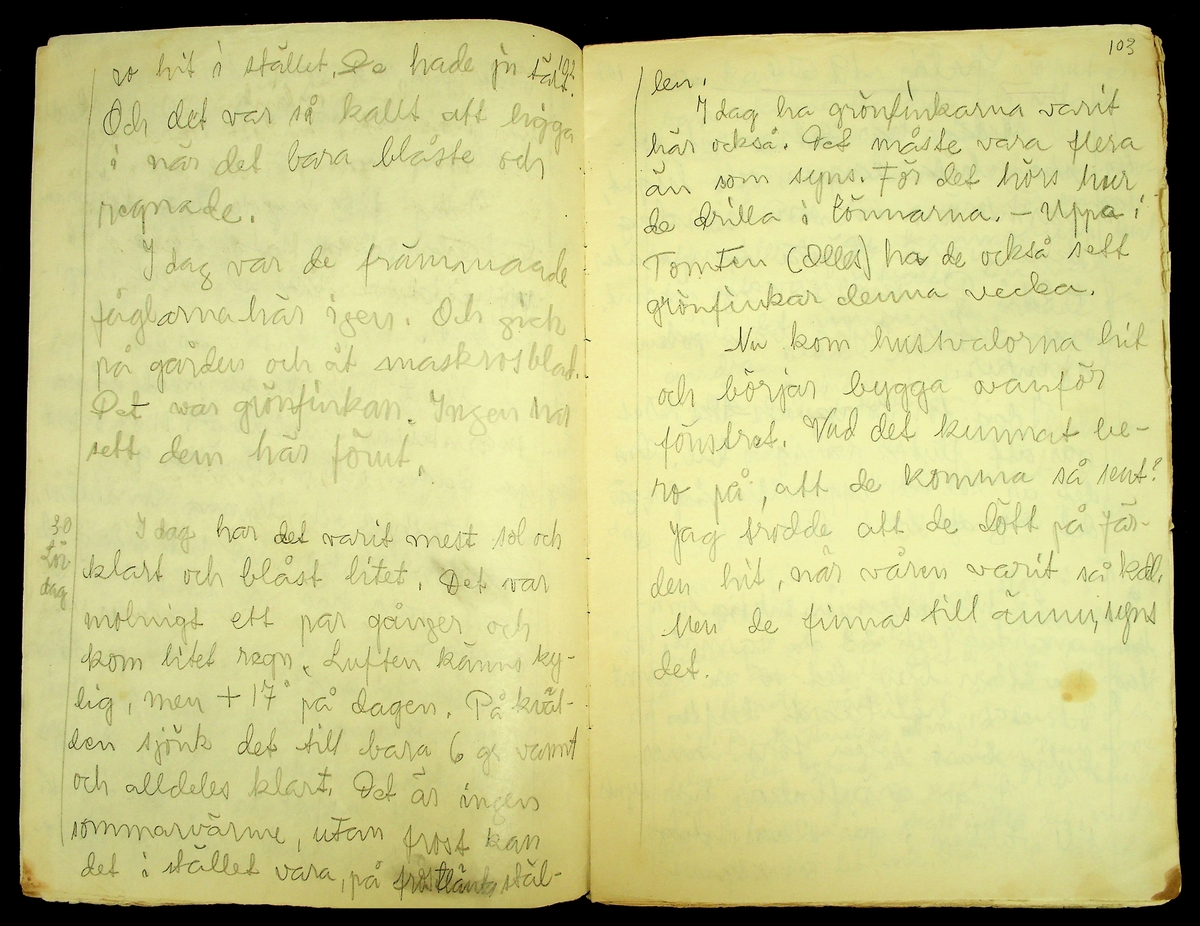 102
ro hit i stället. De hade ju tält.
Och det var så kallt att ligga
i när det bara blåste och
regnade.
I dag var de främmaade
fåglarna här igen. Och gick
på gården och åt maskrosblad.
Det var grönfinkan. Ingen har
sett dem här förut.
30
Lör-
dag
I dag har det varit mest sol och
klart och blåst litet. Det var
molnigt ett par gånger och
kom litet regn. Luften känns ky-
lig, men +17° på dagen. På kväl-
len sjönk det till bara 6 gr varmt
och alldeles klart. Det är ingen
sommarvärme, utan frost kan
det i stället vara, på frostlänta stäl-
103
len.
I dag ha grönfinkarna varit
här också. Det måste vara flera
än som syns. För det hörs hur
de drilla i lönnarna. – Uppa i
Tomten (Olles) ha de också sett
grönfinkar denna vecka.
Nu kom husvalorna hit
och börjar bygga ovanför
fönstret. Vad det kunnat be-
ro på, att de komma så sent?
Jag trodde att de dött på fär-
den hit, när våren varit så kall.
Men de finnas till ännu, syns
det.